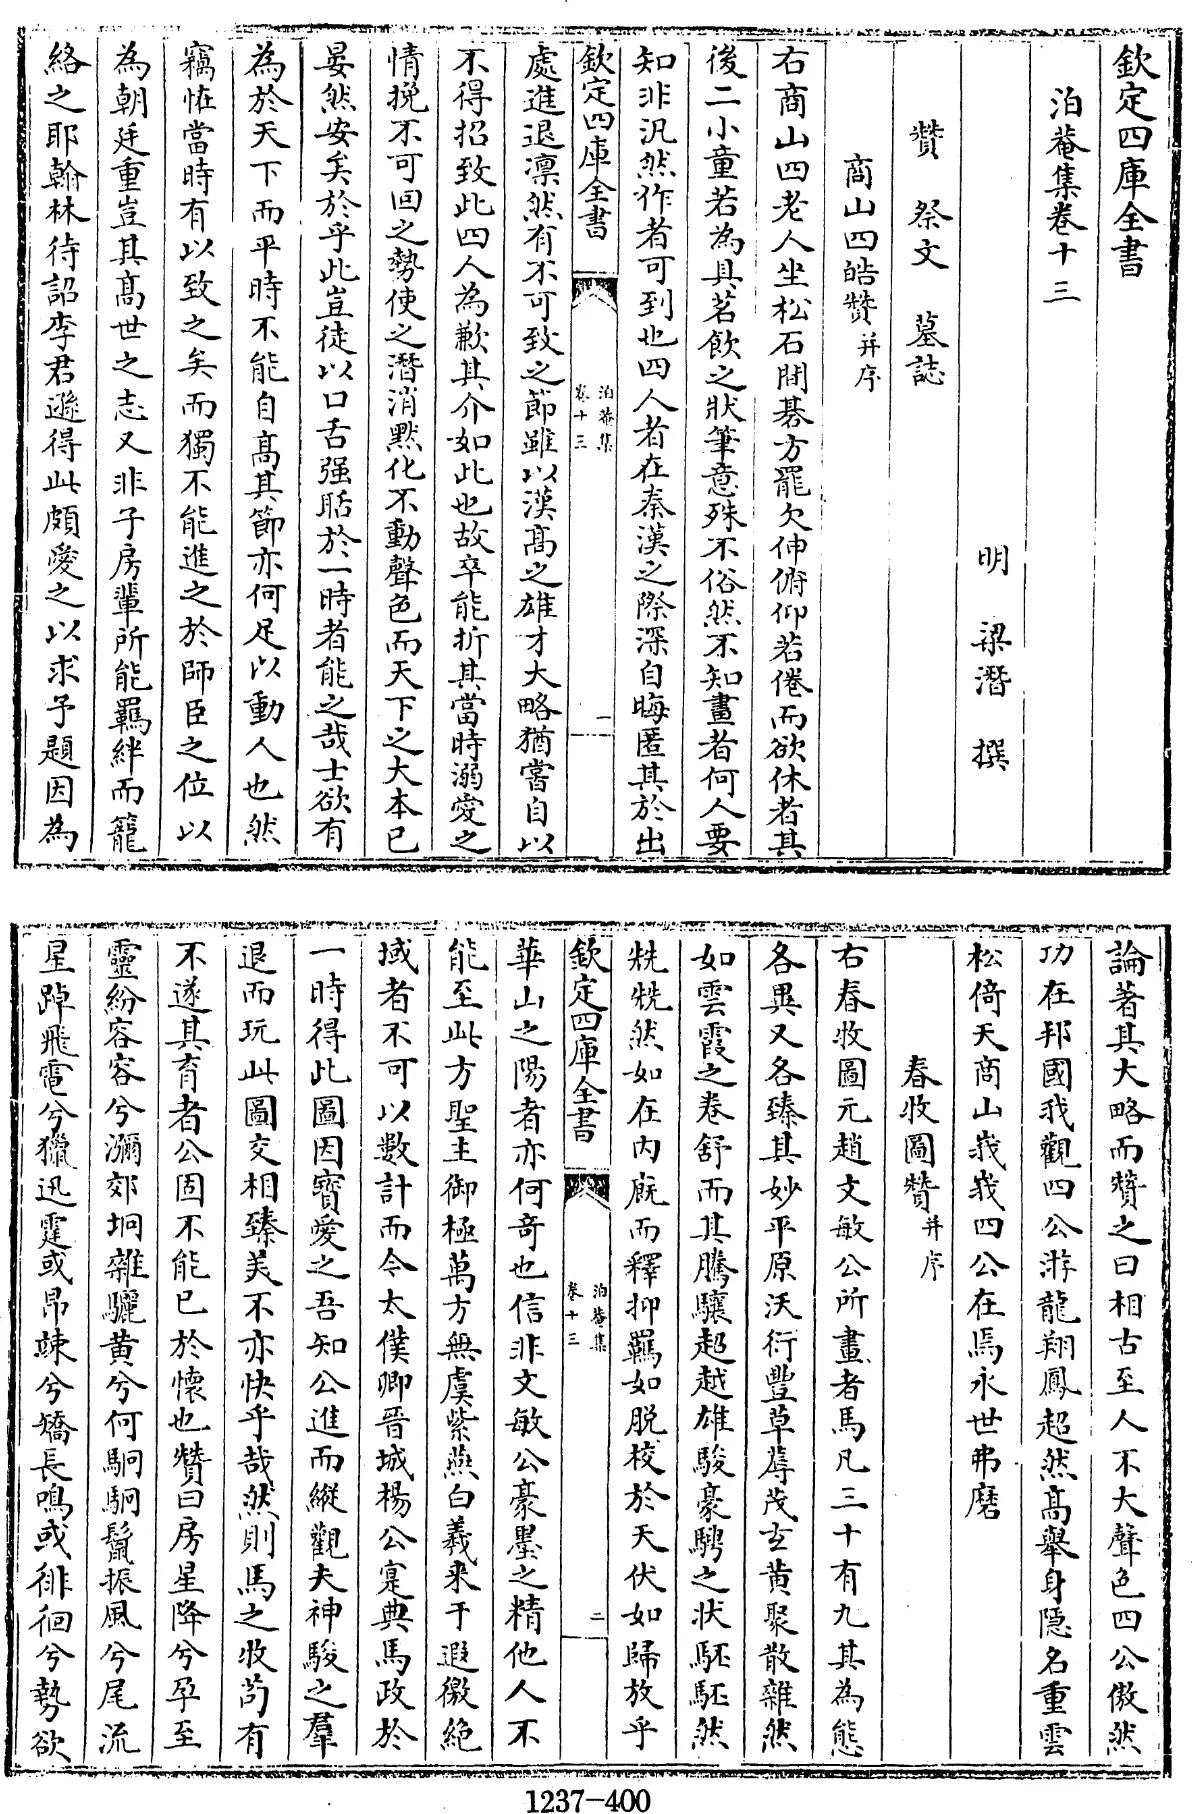 欽定四庫全書
泊菴集卷十三
明 梁潛 撰
贊 祭文 墓誌
商山四皓贊并序
右商山四老人坐松石間碁方罷欠伸俯仰若倦而欲休者其
後二小童若為具茗飲之狀筆意殊不俗然不知畫者何人要
知非汎然作者可到也四人者在秦漢之際深自晦匿其於出
欽定四庫全書
泊菴集
卷十三
一
處進退凛然有不可致之節雖以漢髙之雄才大略猶嘗自以
不得招致此四人為歉其介如此也故卒能折其當時溺愛之
情挽不可回之勢使之潛消黙化不動聲色而天下之大本已
晏然安矣於乎此豈徒以口舌强聒於一時者能之哉士欲有
為於天下而平時不能自髙其節亦何足以動人也然
竊怪當時有以致之矣而獨不能進之於師臣之位以
為朝廷重豈其髙世之志又非子房輩所能羈絆而籠
絡之耶翰林待詔李君遜得此頗愛之以求予題因為
論著其大略而贊之曰相古至人不大聲色四公傲然
功在邦國我觀四公游龍翔鳳超然髙舉身隠名重雲
松倚天商山峩峩四公在焉永世弗磨
春牧圖贊并序
右春牧圖元趙文敏公所畫者馬凡三十有九其為態
各異又各臻其妙平原沃衍豐草蓐茂玄黄聚散雜然
如雲霞之卷舒而其騰驤超越雄駿豪騁之状駓駓然
兟兟然如在内廐而釋抑羈如脱校於天伏如歸放乎
欽定四庫全書
泊菴集
卷十三
二
華山之陽者亦何竒也信非文敏公豪墨之精他人不
能至此方聖主御極萬方無虞紫燕白義來于遐徼絶
域者不可以數計而今太僕卿晋城楊公寔典馬政於
一時得此圖因寳愛之吾知公進而縱觀夫神駿之羣
退而玩此圖交相臻美不亦快乎哉然則馬之牧茍有
不遂其育者公固不能已於懷也贊曰房星降兮孕至
靈紛容容兮瀰郊坰雜驪黄兮何駉駉鬣振風兮尾流
星踔飛電兮獵迅霆或昂竦兮矯長鳴或徘徊兮勢欲
1237-400